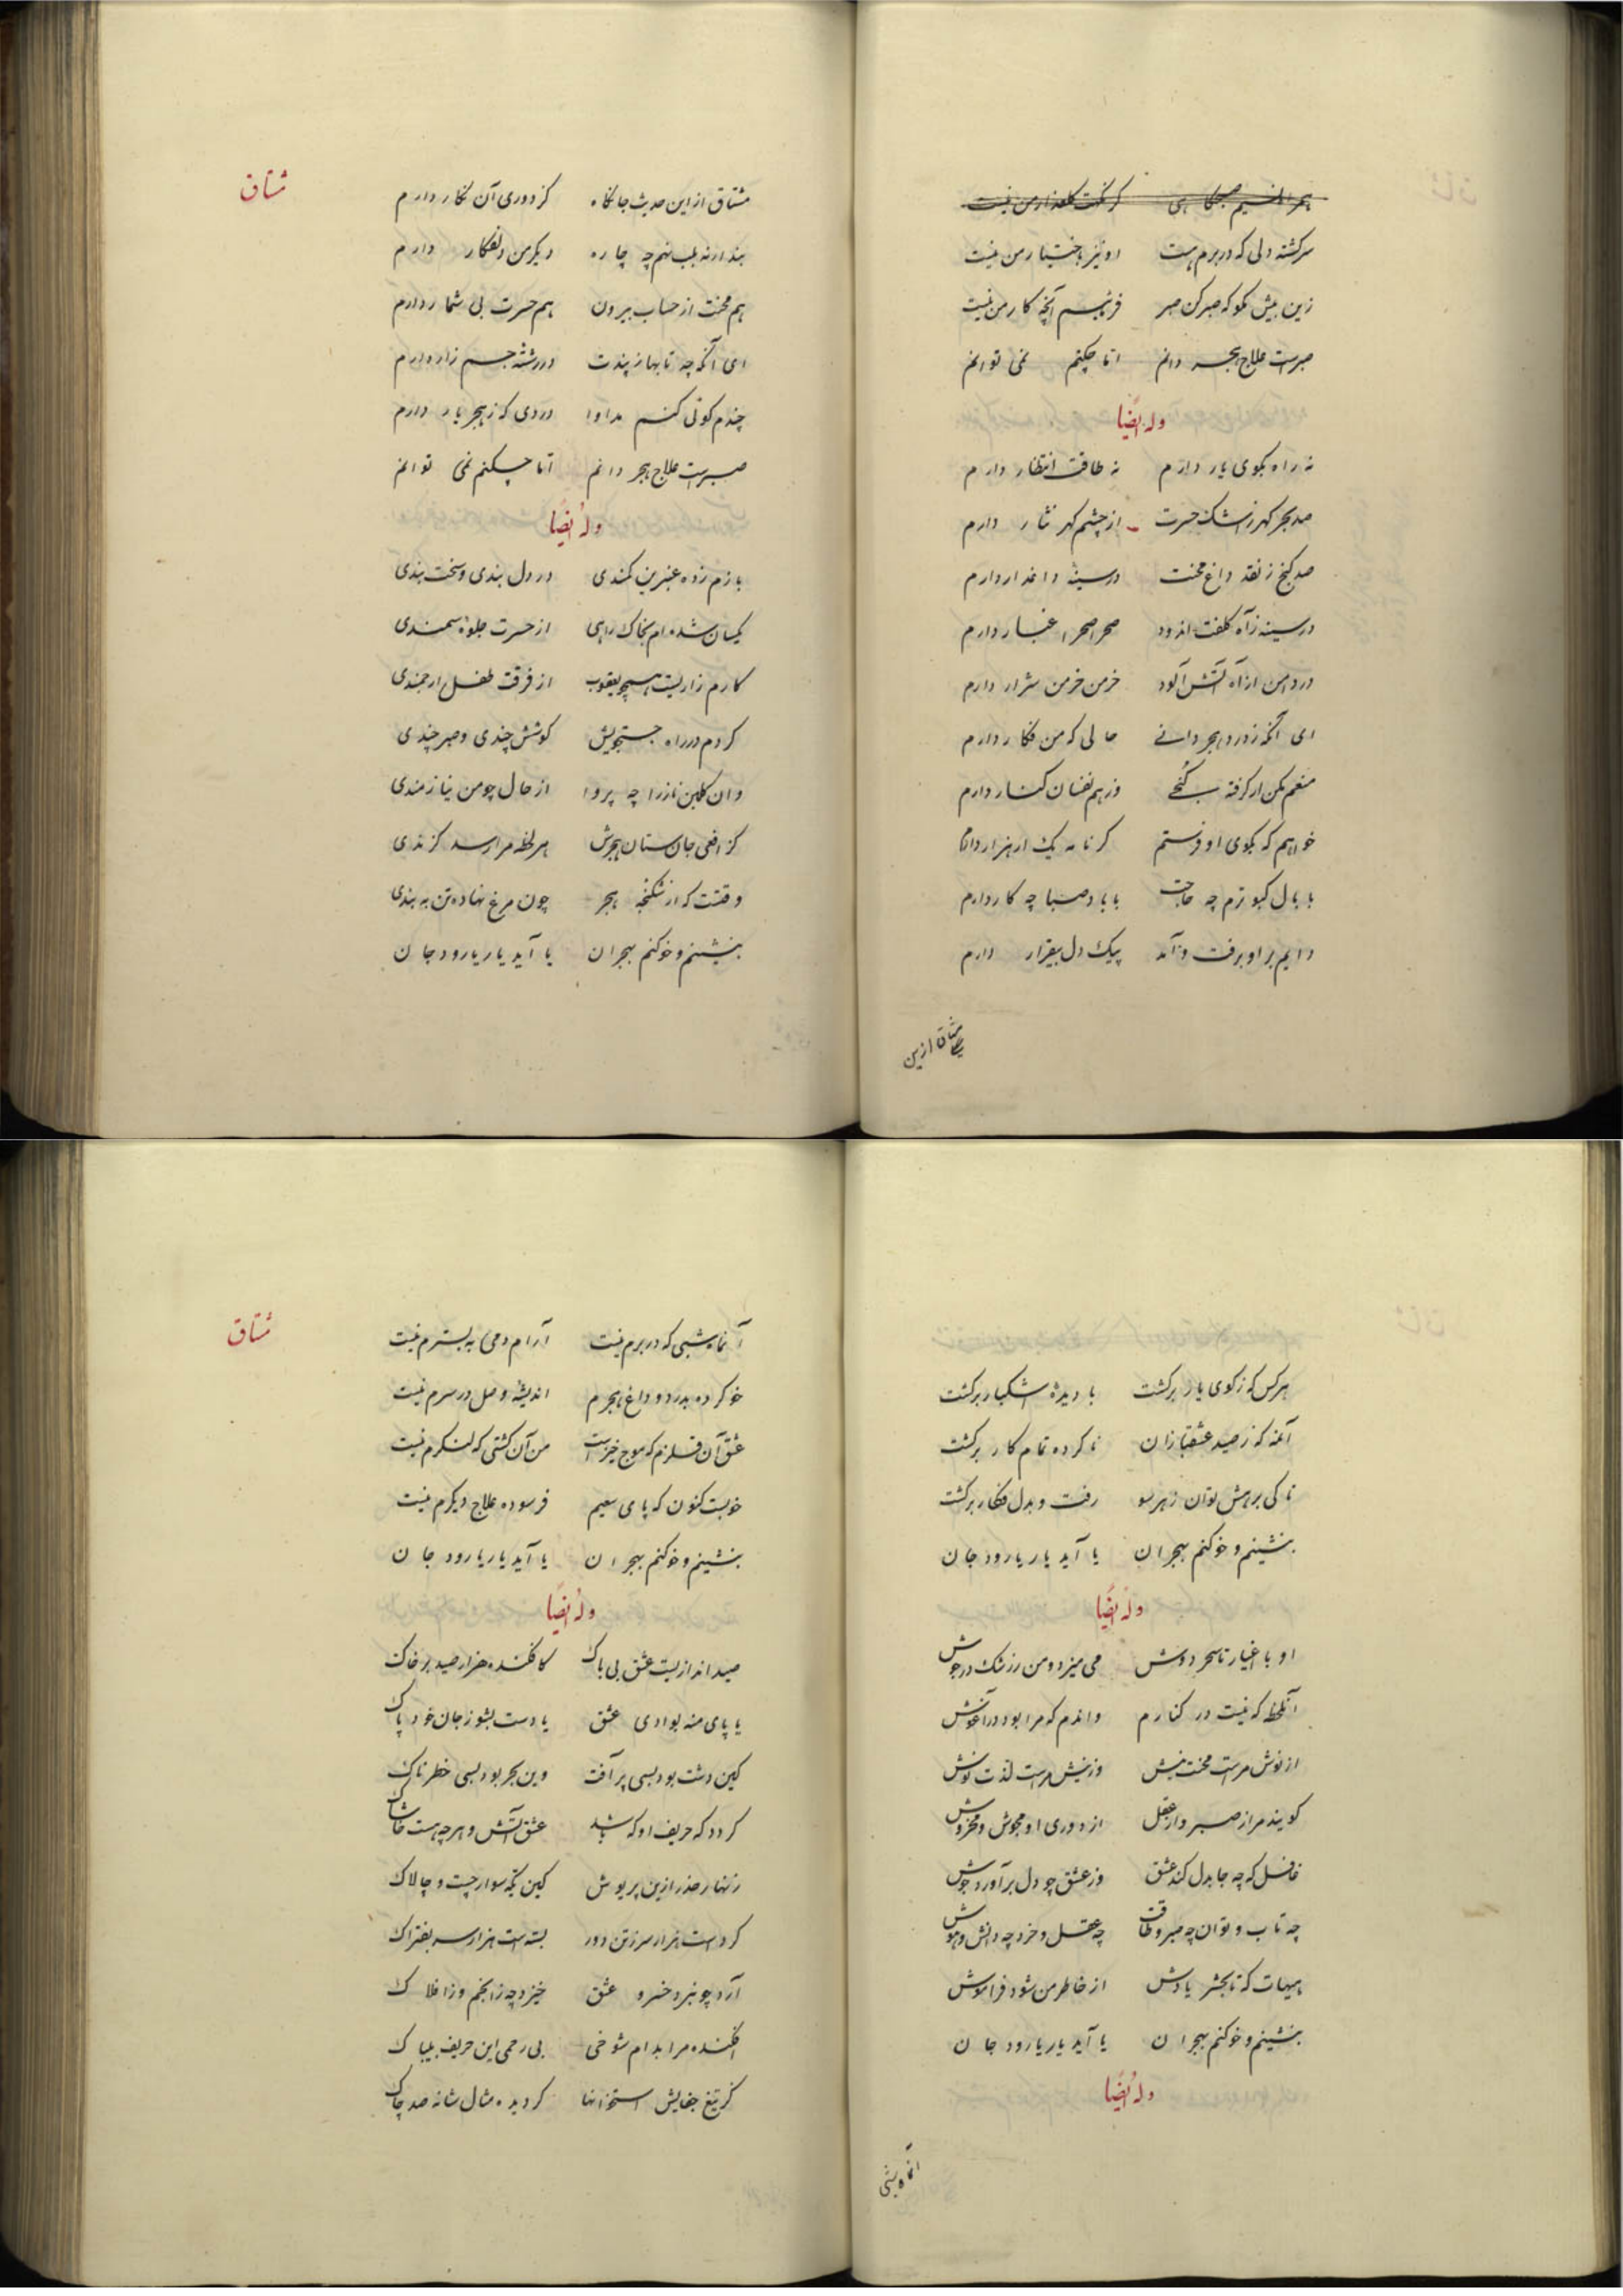 همراه نسیم صبحگاهی کز نکهت گلعذار من نیست
سرگشته دلی که در برم هست او نیز باختیار من نیست
زین بیش مگو که صبر کن صبر فرمایم آنچه کار من نیست
صبرست علاج هجر دانم اما چکنم نمی توانم
وله ایضا
نه راه بکوی یار دارم نه طاقت انتظار دارم
صد بحر گهر ز اشک حسرت از چشم گهر نثار دارم
صد گنج ز نقد داغ محنت در سینه داغدار دارم
در سینه ز آه کلفت اندود صحرا صحرا غبار دارم
در دامن از آه آتش آلود خرمن خرمن شرار دارم
ای آنکه ز درد هجر دانی حالی که من فکار دارم
منعم مکن ار گرفته کنجی وز هم نفسان کنار دارم
خواهم که بکوی او فرستم گر نامه یک ار هزار دارم
با بال کبوترم چه حاجت با باد صبا چه کار دارم
دایم بر او برفت و آمد پیک دل بیقرار دارم
مشتاق ازین
مشتاق
مشتاق از این حدیث جانکاه کز دوری آن نگار دارم
بندار نه بلب نهم چه چاره دیگر من دلفکار دارم
هم محنت از حساب بیرون هم حسرت بی شمار دارم
ای آنکه چه تابها ز پندت در رشته جسم زار دارم
چندم گوئی کنم مداوا دردی که ز هجر یار دارم
صبرست علاج هجر دانم اما چکنم نمی توانم
وله ایضا
بازم زده عنبرین کمندی در دل بندی و سخت بندی
یکسان شده‌ام بخاک راهی از حسرت جلوه سمندی
کارم زاریست همچو یعقوب از فرقت طفل ارجمندی
کردم در راه جستجویش کوشش چندی و صبر چندی
وان گلبن ناز را چه پروا از حال چو من نیازمندی
کز افعی جان ستان هجرش هر لحظه مرا رسد گزندی
وقتست که از شکنجه هجر چون مرغ نهاده تن به بندی
بنشینم و خو کنم بهجران یا آید یار یا رود جان
هر کس که ز کوی یار برگشت با دیده اشکبار برگشت
آنمه که ز صید عشقبازان نا کرده تمام کار برگشت
تا کی برهش توان ز هر سو رفت و بدل فکار برگشت
بنشینم و خو کنم بهجران یا آید یار یا رود جان
وله ایضا
او با اغیار تا سحر دوش می میزد و من ز رشک در جوش
آنلحظه که نیست در کنارم واندم که مرا بود در آغوش
از نوش مراست محنت نیش وز نیش مراست لذت نوش
گویند مرا ز صبر و از عقل از دوری او مجوش و مخروش
غافل که چه جا بدل کند عشق وز عشق چو دل برآورد جوش
چه تاب و توان چه صبر و طاقت چه عقل و خرد چه دانش و هوش
هیهات که تا بحشر یادش از خاطر من شود فراموش
بنشینم و خو کنم بهجران یا آید یار یا رود جان
وله ایضا
آنماه شبی
مشتاق
آنماه شبی که در برم نیست آرام دمی به بسترم نیست
خو کرده بدرد و داغ هجرم اندیشه وصل در سرم نیست
عشق آن قلزم که موج خیزست من آن کشتی که لنگرم نیست
خوبست کنون که پای سعیم فرسوده علاج دیگرم نیست
بنشینم و خو کنم بهجران یا آید یار یا رود جان
وله ایضا
صید اندازیست عشق بی باک کافکنده هزار صید بر خاک
یا پای منه بوادی عشق یا دست بشو ز جان خود پاک
کین دشت بود بسی پر آفت وین بحر بود بسی خطرناک
گردد که حریف او که باشد عشق آتش و هر چه هست خاشاک
زنهار حذر ازین پریوش کین یکه سوار چست و چالاک
کردست هزار سر ز تن دور بسته است هزار سر بفتراک
آرد چو نبرد خسرو عشق خیزد چه ز انجم و ز افلاک
افکنده مرا بدام شوخی بی رحمی این حریف بیباک
کز تیغ جفایش استخوانها گردیده مثال شانه صد چاک